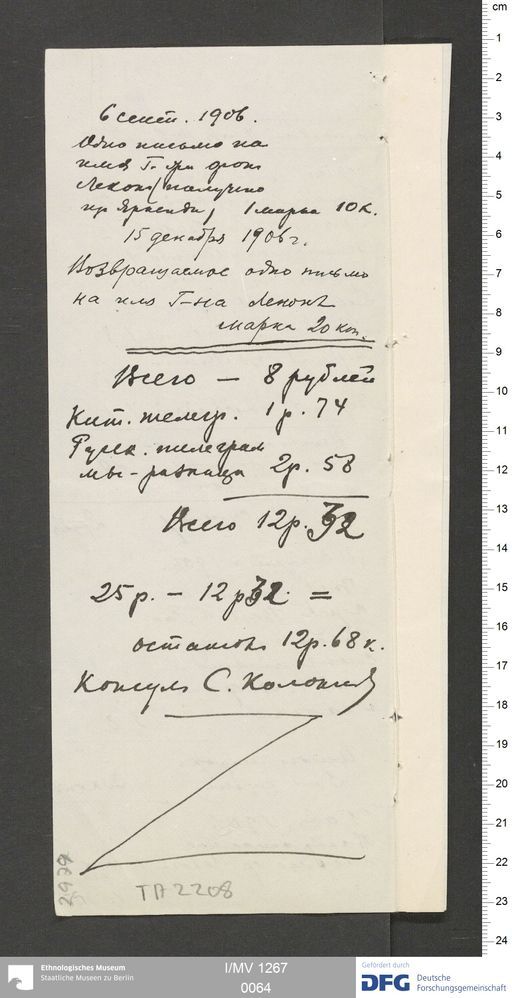 6 сент. 1906.
Одно письмо на
имя Г. фон
Лекокъ (получено
1 марка 10 к.
15 декабря 1906 г.
Возвращаемое одно письмо
на имя Г-на Лекокъ
марка 20 коп.
Всего — 8 рублей
Кит. телегр. 1 р. 74
Русск. телеграм
мы - разница 2р. 58
Всего 12р. 32
25 р. — 12 р 32. =
остатокъ 12р. 68 к.
Консулъ С. Колоколовъ
2979
TA 2208
cm
1
2
3
4
5
6
7
8
9
10
11
12
13
14
15
16
17
18
19
20
21
22
23
24
Ethnologisches Museum
Staatliche Museen zu Berlin
I/MV 1267
0064
Gefördert durch
DFG Deutsche
Forschungsgemeinschaft